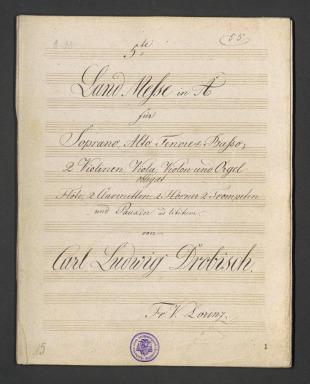 55
5te
Land Messe in A
für
Soprano, Alto, Tenore, Basso,
2 Violinen, Viola, Violon und Orgel
obligat
Flöte, 2 Clarinetten, 2 Hörner, 2 Trompeten
und Pauken ad libitum
von
Carl Ludwig Drobisch.
Fr. V. Lorenz.
15
1